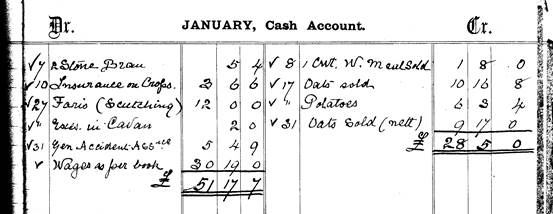 Dr. JANUARY, Cash Account. Cr.
√7 2 Stone Bran 5 4
√10 Insurance on Crops. 3 6 6
√27 Faris (Scutching) 12 0 0
√" Exes. in Cavan 2 0
√31 Gen Accident Assce 5 4 9
√ Wages as per book 30 19 0
£ 51 17 7
√ 8 1 Cwt. W. Meal Sold 1 8 0
√ 17 Oats sold 10 16 8
√ " Potatoes 6 3 4
√ 31 Oats Sold (nett) 9 17 0
£ 28 5 0